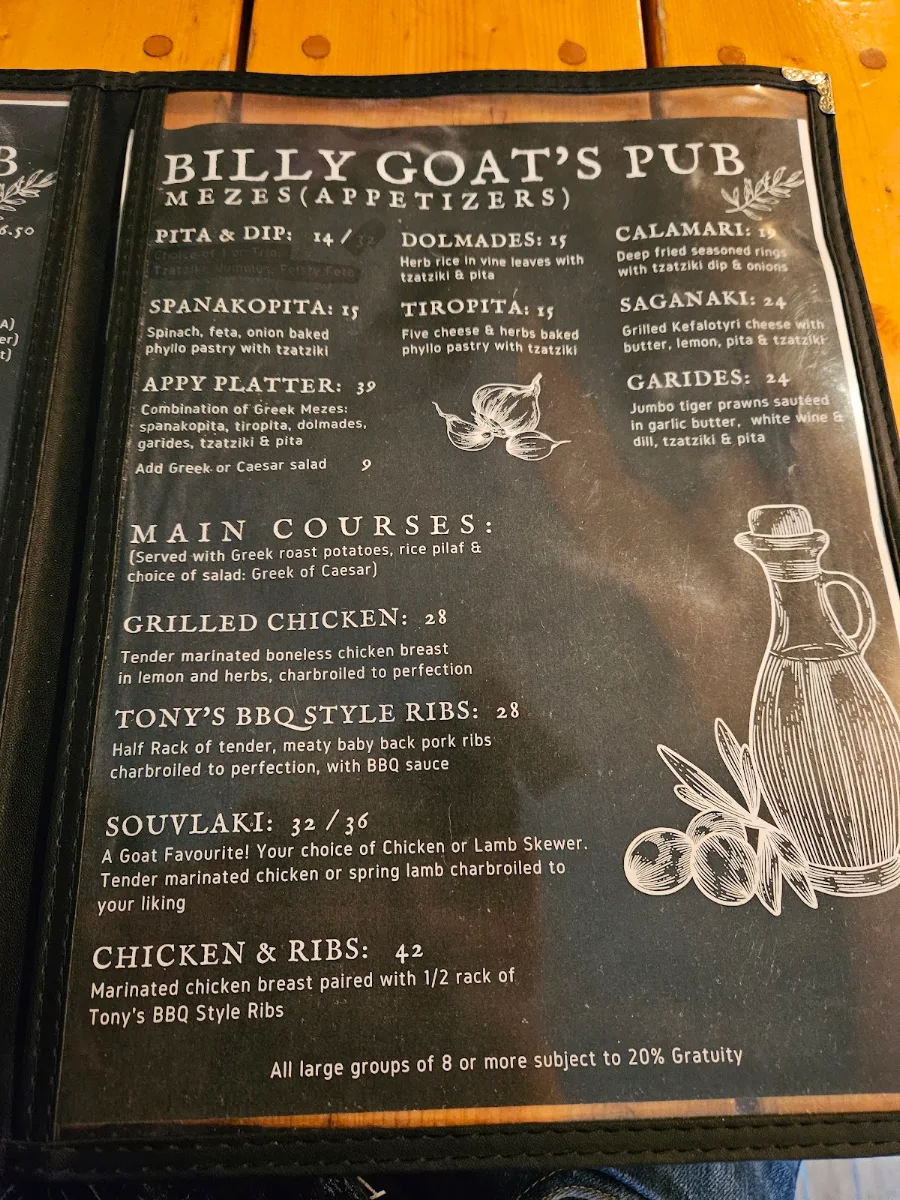 B
6.50
A)
er)
t)
BILLY GOAT'S PUB
MEZES(APPETIZERS)
PITA & DIP: 14 / 32
Choice of 1 or Trio:
Tzatziki, Hummus, Feisty Feta
SPANAKOPITA: 15
Spinach, feta, onion baked
phyllo pastry with tzatziki
APPY PLATTER: 39
Combination of Greek Mezes:
spanakopita, tiropita, dolmades,
garides, tzatziki & pita
Add Greek or Caesar salad 9
DOLMADES: 15
Herb rice in vine leaves with
tzatziki & pita
TIROPITA: 15
Five cheese & herbs baked
phyllo pastry with tzatziki
CALAMARI: 19
Deep fried seasoned rings
with tzatziki dip & onions
SAGANAKI: 24
Grilled Kefalotyri cheese with
butter, lemon, pita & tzatziki
GARIDES: 24
Jumbo tiger prawns sautéed
in garlic butter, white wine &
dill, tzatziki & pita
MAIN COURSES:
(Served with Greek roast potatoes, rice pilaf &
choice of salad: Greek of Caesar)
GRILLED CHICKEN: 28
Tender marinated boneless chicken breast
in lemon and herbs, charbroiled to perfection
TONY'S BBQ STYLE RIBS: 28
Half Rack of tender, meaty baby back pork ribs
charbroiled to perfection, with BBQ sauce
SOUVLAKI: 32 / 36
A Goat Favourite! Your choice of Chicken or Lamb Skewer.
Tender marinated chicken or spring lamb charbroiled to
your liking
CHICKEN & RIBS: 42
Marinated chicken breast paired with 1/2 rack of
Tony's BBQ Style Ribs
All large groups of 8 or more subject to 20% Gratuity